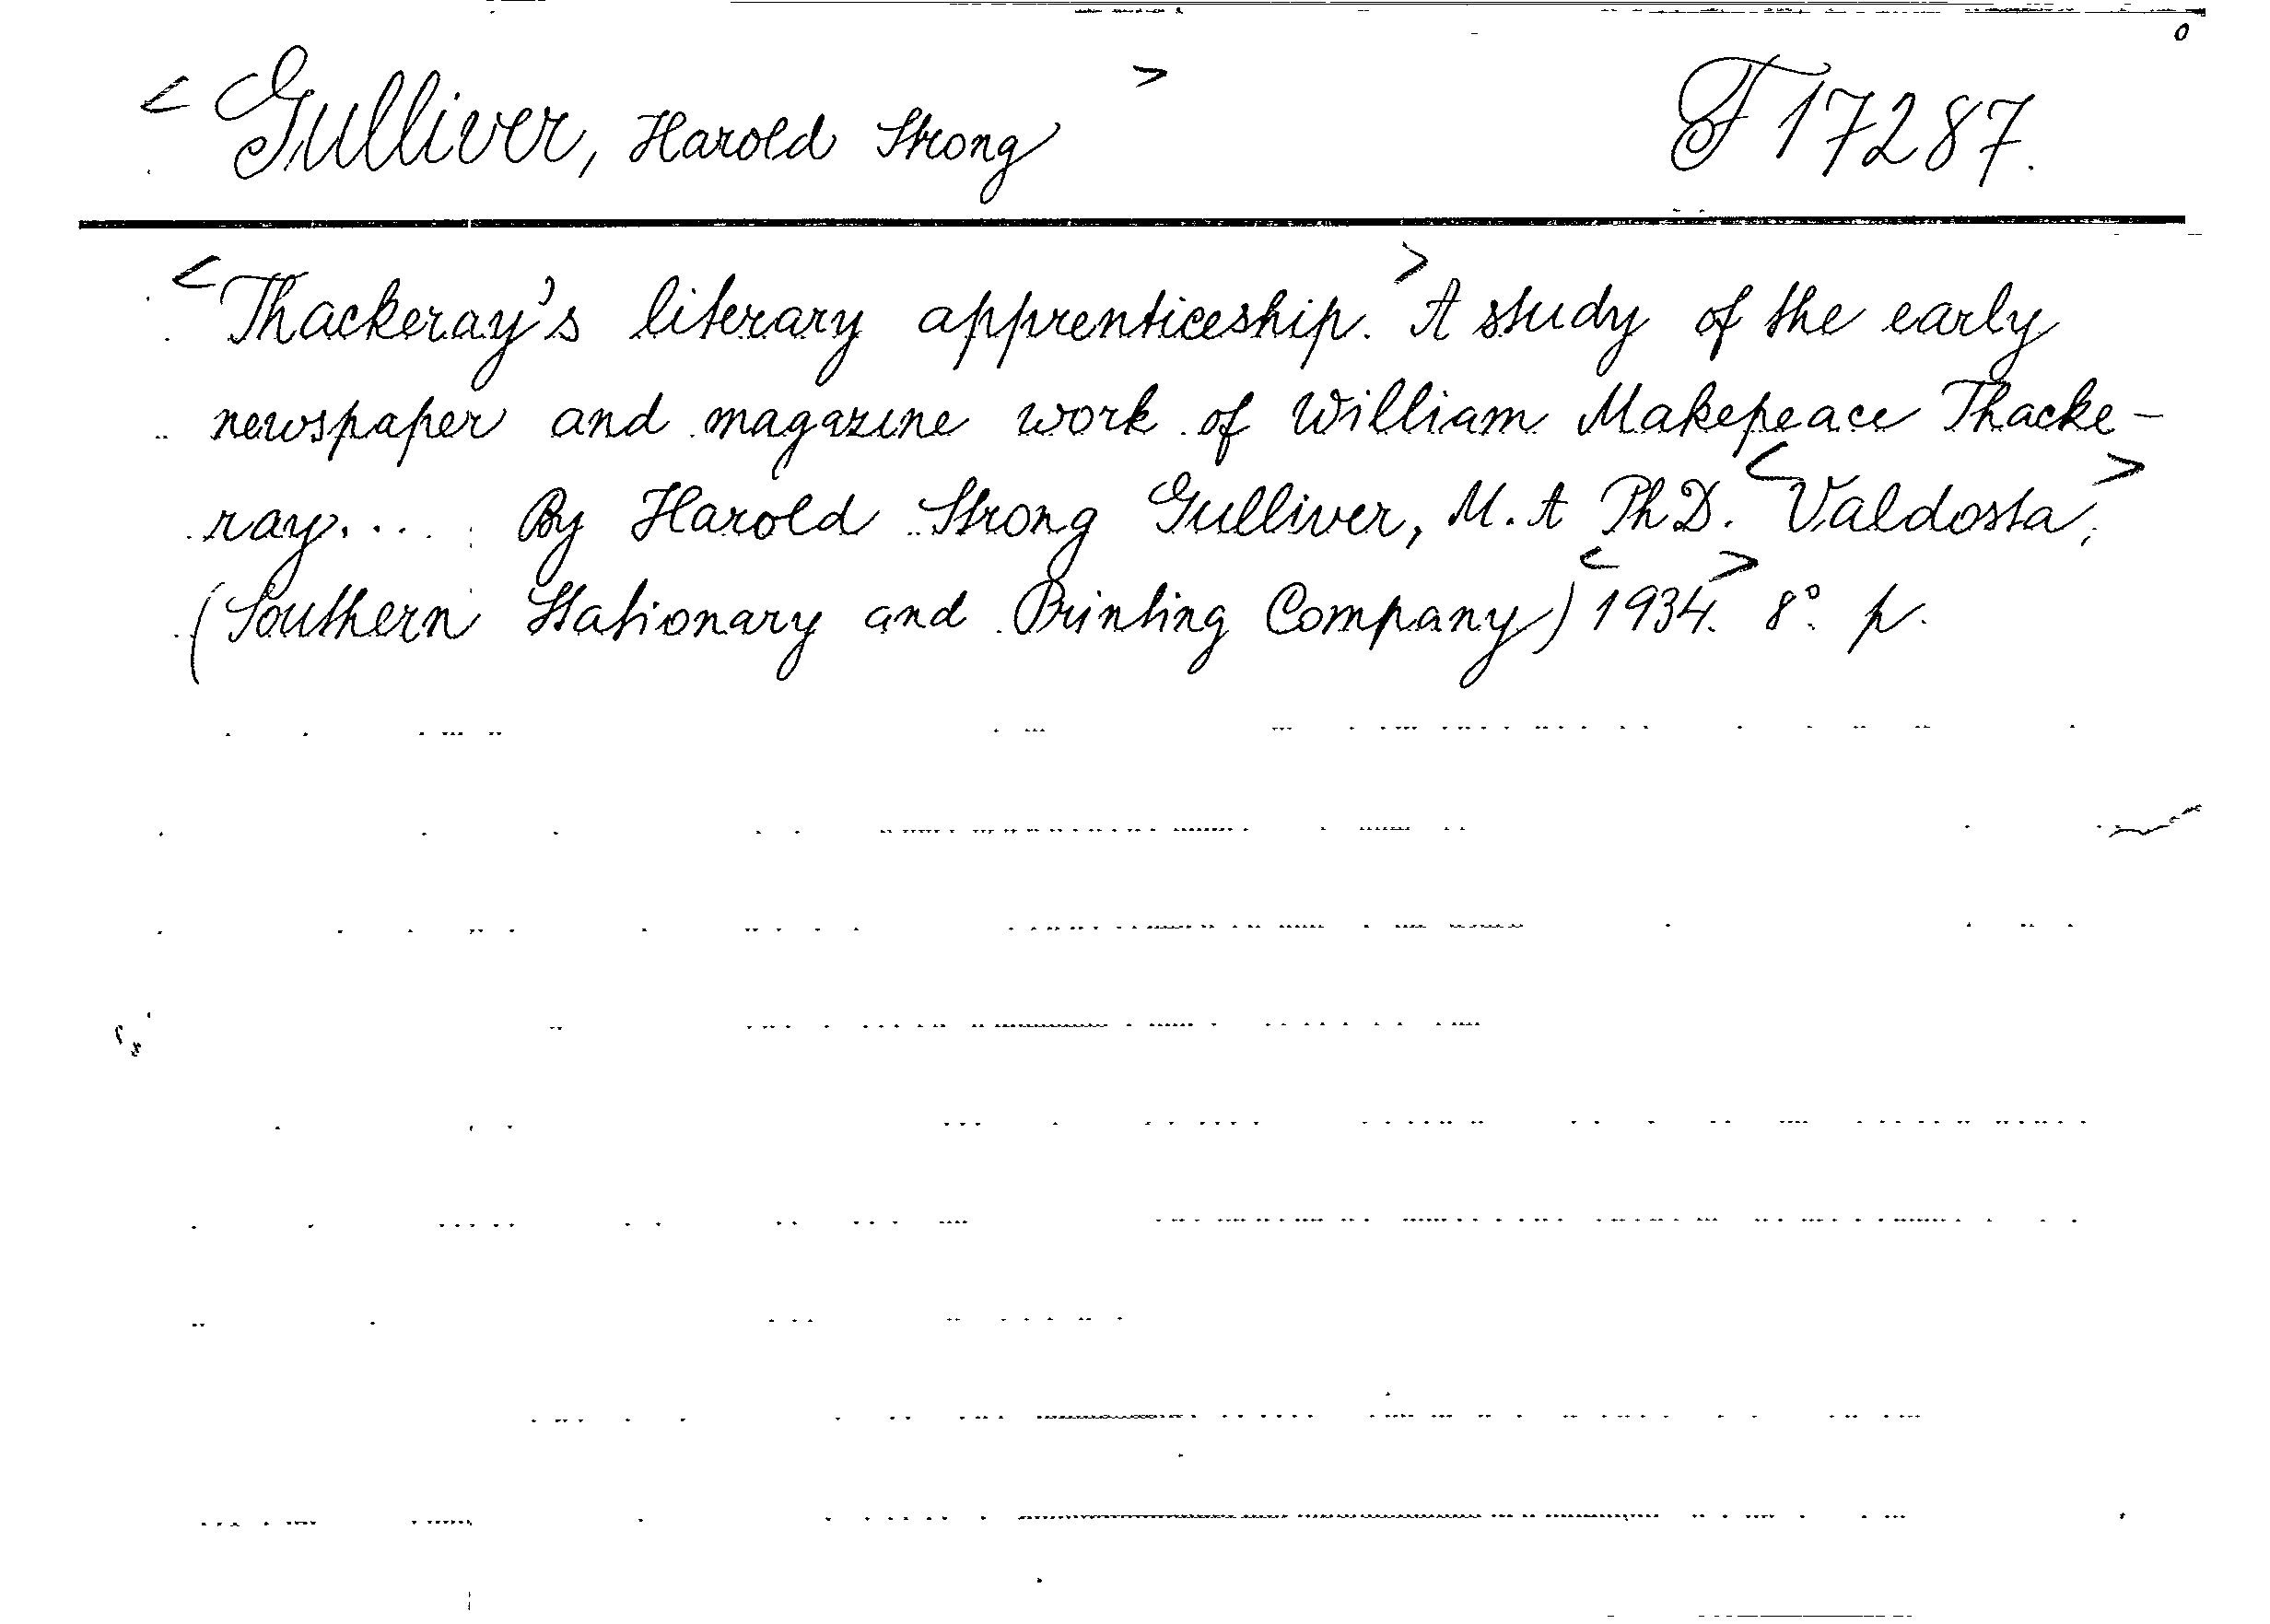 < Gulliver, Harold Strong > F 17287.
<Thackeray's literary apprenticeship.> A study of the early
newspaper and magazine work of William Makepeace Thacke-
ray.... By Harold Strong Gulliver, M. A PhD. <Valdosta,>
(Southern Stationary and Printing Company) <1934.> 8° p.